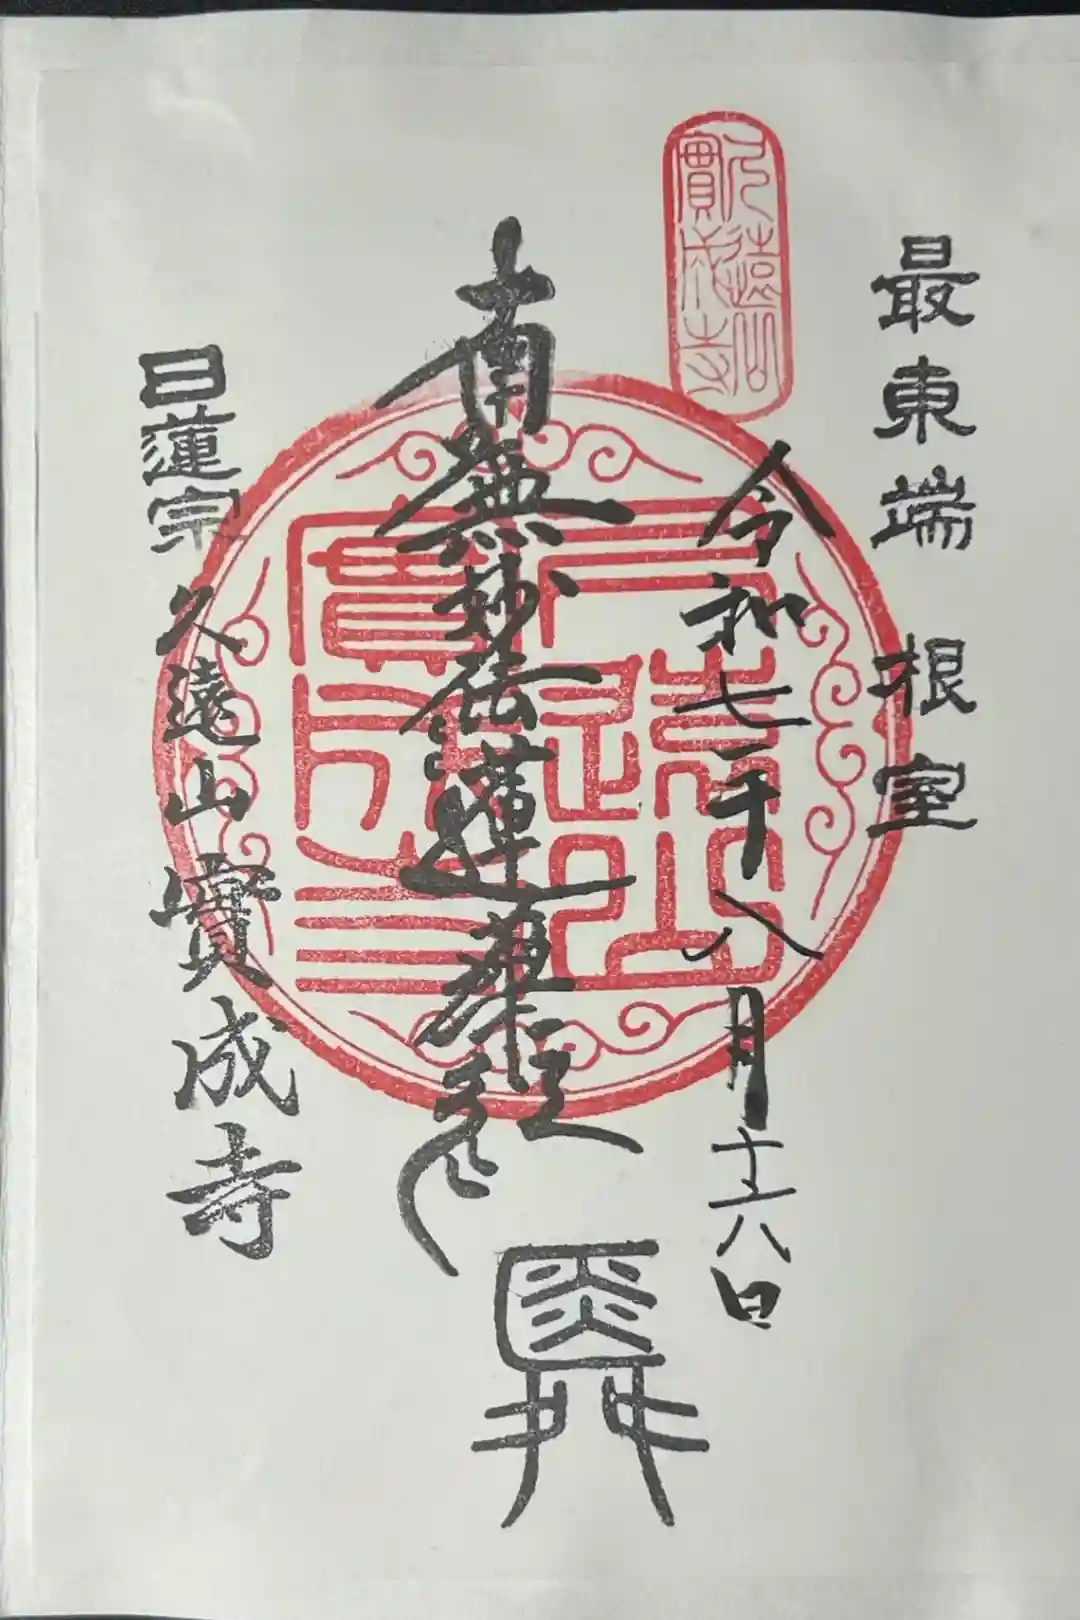 最東端 根室
久遠山
實成寺
令和七年八月十六日
南無妙法蓮華経
久遠山
實成寺
日蓮宗 久遠山 實成寺